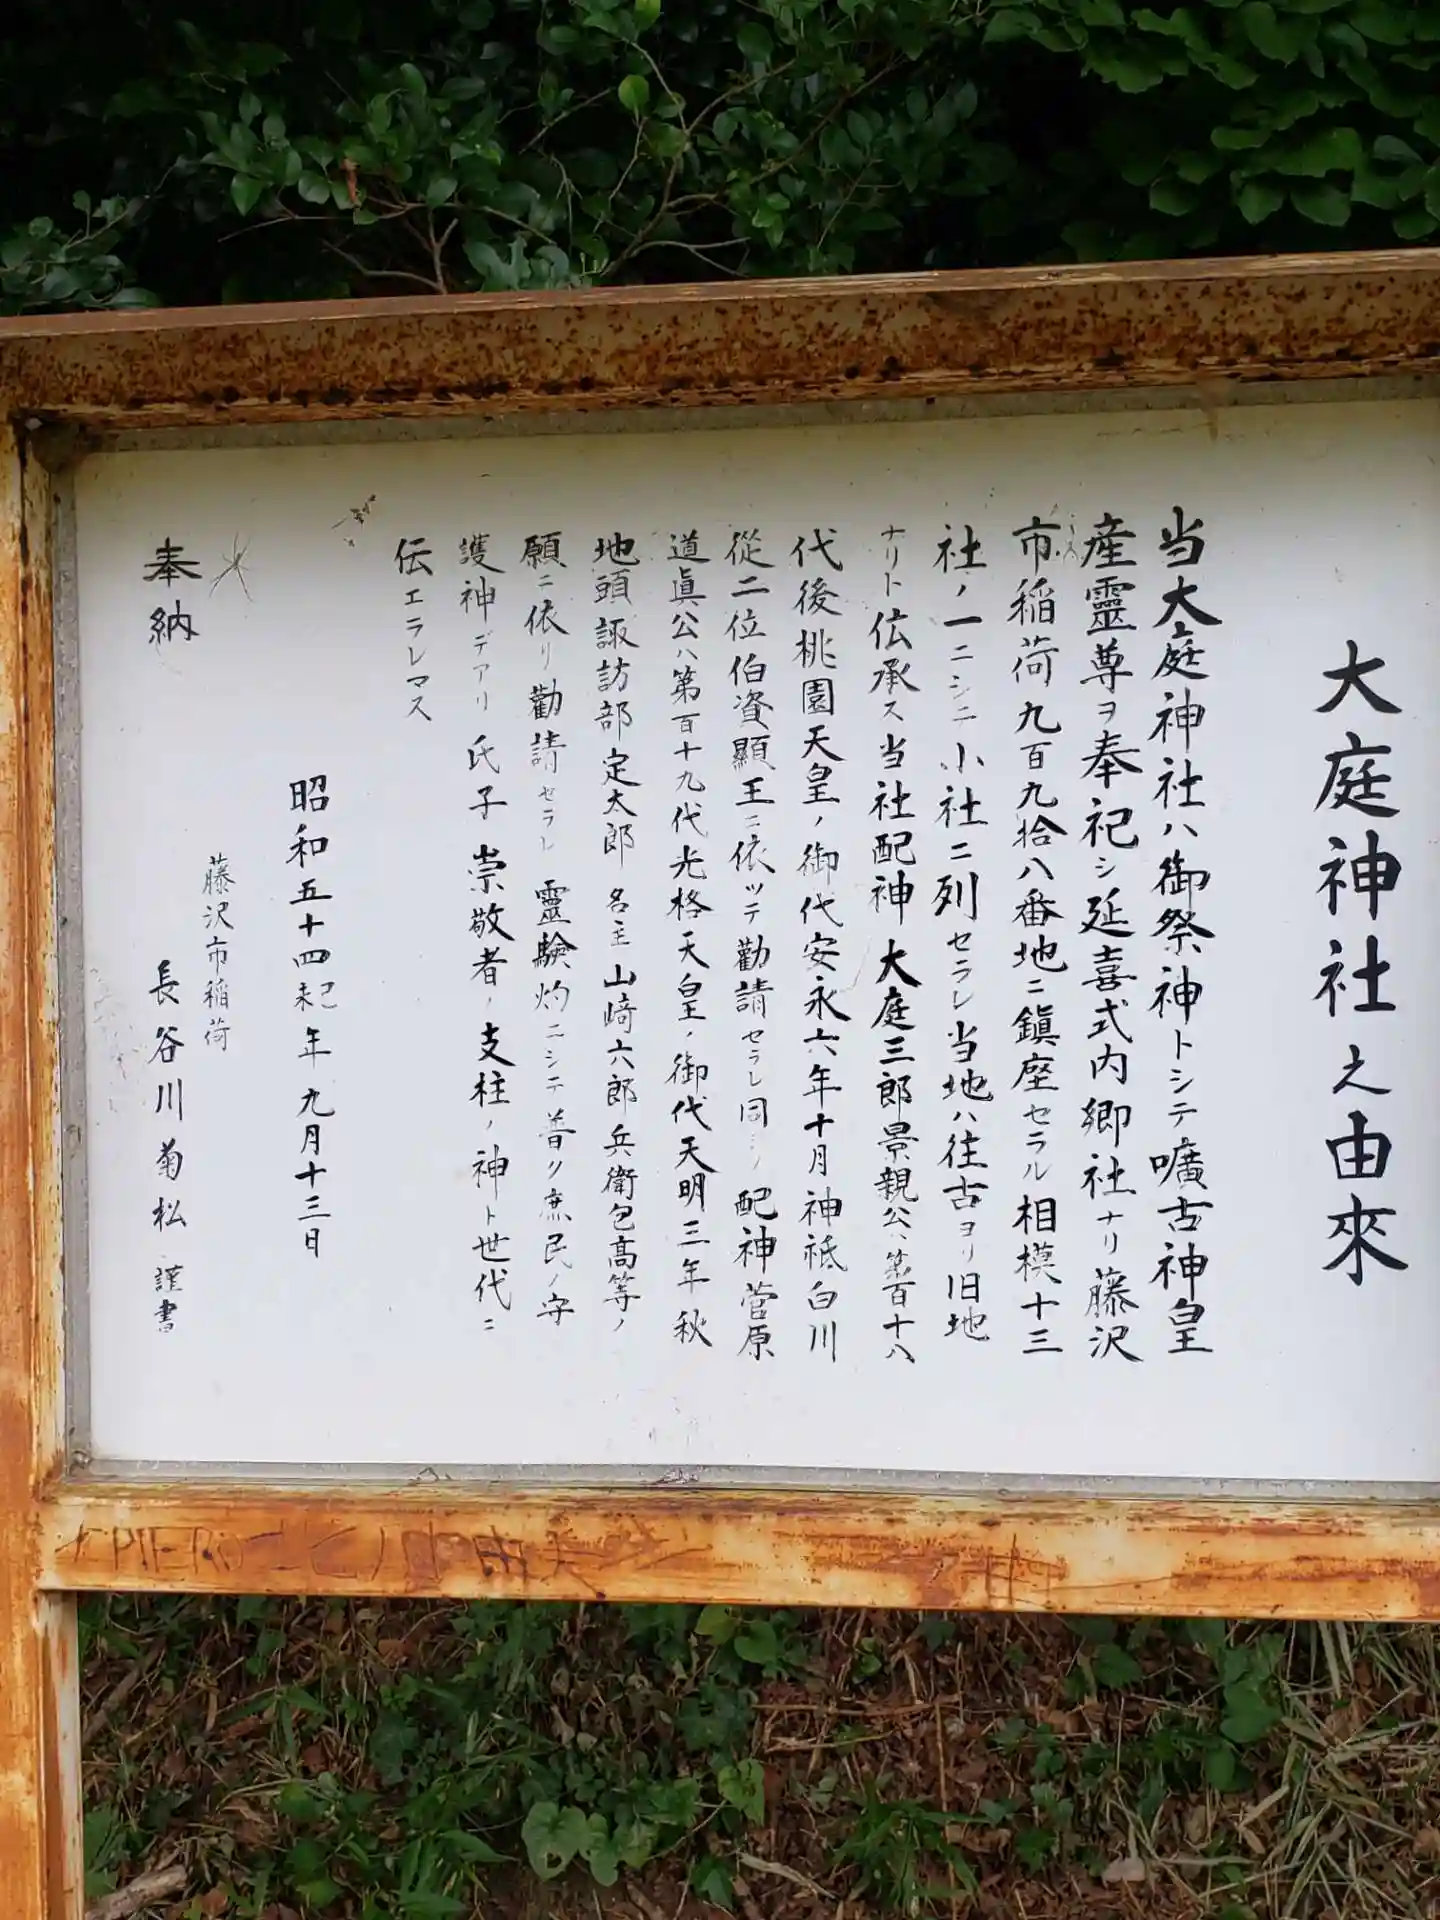 大庭神社之由來
当大庭神社ハ御祭神トシテ嚝古神皇
産霊尊ヲ奉祀シ延喜式内郷社ナリ藤沢
市稲荷九百九拾八番地ニ鎭座セラル相模十三
社ノ一ニシテ小社ニ列セラレ当地ハ往古ヨリ旧地
ナリト伝承ス当社配神大庭三郎景親公ハ第百十八
代後桃園天皇ノ御代安永六年十月神祇白川
從二位伯資顯王ニ依ッテ勸請セラレ同ジク配神菅原
道眞公ハ第百十九代光格天皇ノ御代天明三年秋
地頭諏訪部定太郎名主山崎六郎兵衛包高等ノ
願ニ依リ勸請セラレ靈驗灼ニシテ普ク庶民ノ守
護神デアリ氏子崇敬者ノ支柱ノ神ト世代ニ
伝エラレマス
昭和五十四年九月十三日
藤沢市稲荷
奉納 長谷川菊松 謹書